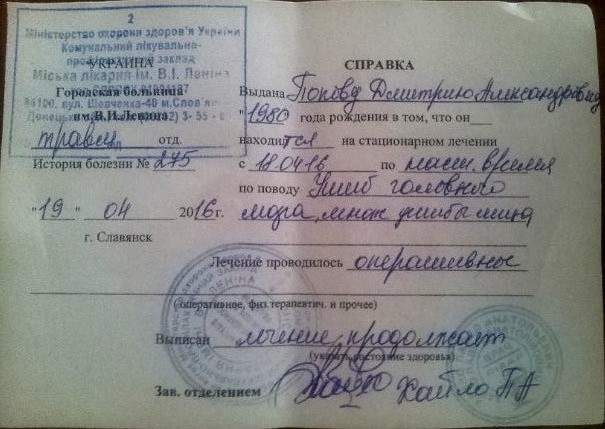 2
Міністерство охорони здоров'я України
Комунальний лікувально-
заклад
Міська лікарня ім. В.І. Леніна
84100, вул. Шевченка-40 м.Слов
УКРАИНА
Городская больница
им. В.И.Ленина
травм отд.
История болезни № 275
"19" 04 2016 г.
г. Славянск
СПРАВКА
Выдана Попову Дмитрию Александровичу
"1980 года рождения в том, что он
находится на стационарном лечении
с 18.04.16 по наст. время
по поводу Ушиб головного
мозга, множ ушибы лица
Лечение проводилось оперативное
(оперативное, физ.терапевтич. и прочее)
Выписан лечение продолжает
(указать состояние здоровья)
Зав. отделением Хайло ПА